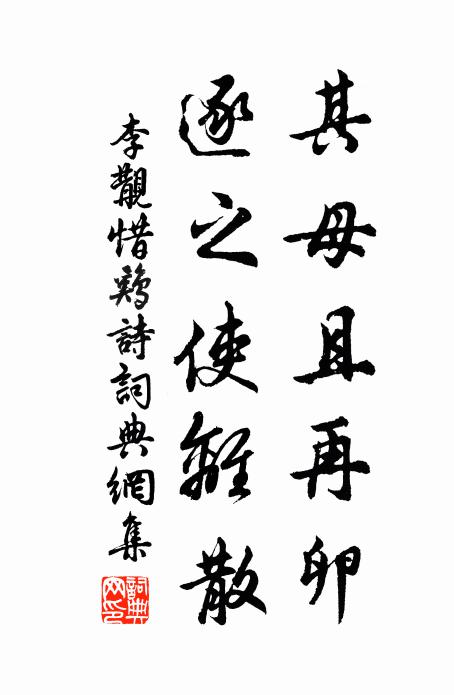 其母且再卵
逐之使離散
李覯惜鷄詩詞典網集
詞典網印